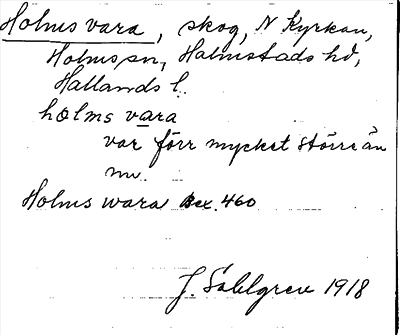 Holms vara, skog, N Kyrkan,
Holms sn, Halmstads hd,
Hallands l.
holms vara
var förr mycket större än
nu.
Holms wara Bex. 460
J. Sahlgren 1918